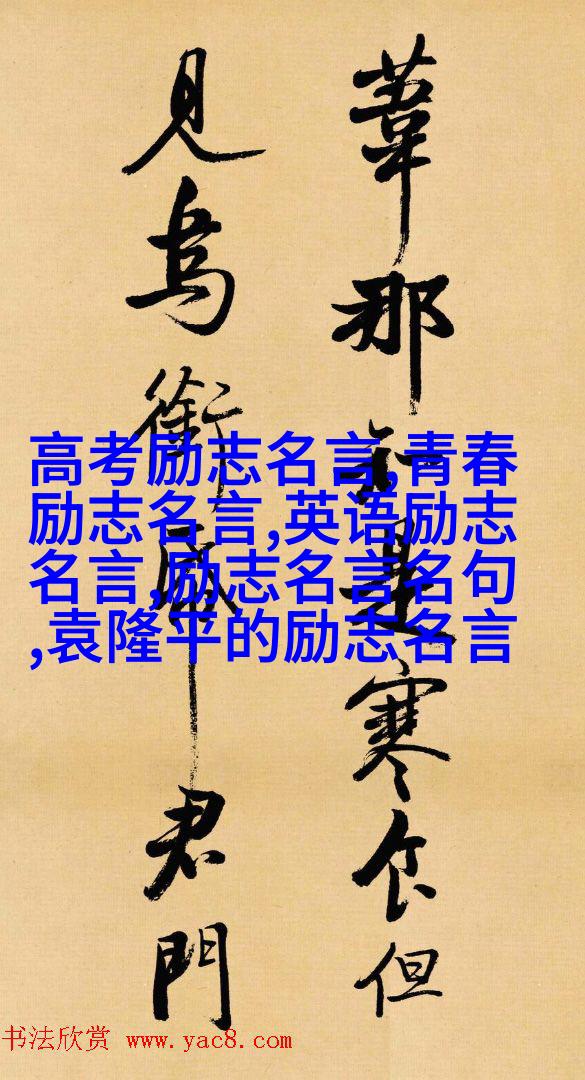 葦那知是寒食但
見烏銜帋君門
高考励志名言,青春
励志名言,英语励志
名言,励志名言名句
,袁隆平的励志名言
书法欣赏 www.yac8.com